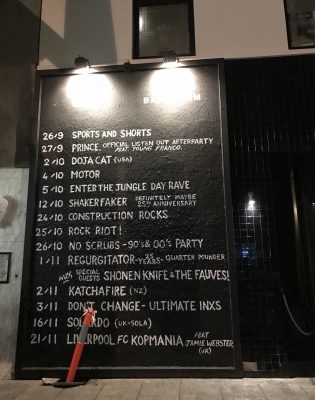 26/9 SPORTS AND SHORTS
27/9 PRINCE. OFFICIAL LISTEN OUT AFTERPARTY
FEAT. YOUNG FRANCO.
2/10 DOJA CAT (USA)
4/10 MOTOR
5/10 ENTER THE JUNGLE DAY RAVE
12/10 SHAKER FAKER DEFINITELY MAYBE
25TH ANNIVERSARY
24/10 CONSTRUCTION ROCKS
25/10 ROCK RIOT!
26/10 NO SCRUBS - 90'S & 00'S PARTY
1/11 REGURGITATOR - 25 YEARS - QUARTER POUNDER
WITH SPECIAL GUESTS SHONEN KNIFE & THE FAUVES!
2/11 KATCHAFIRE (NZ)
3/11 DON'T CHANGE - ULTIMATE INXS
16/11 (UK-SOLA)
21/11 LIVERPOOL FC KOPMANIA FEAT
JAMIE WEBSTER
(UK)